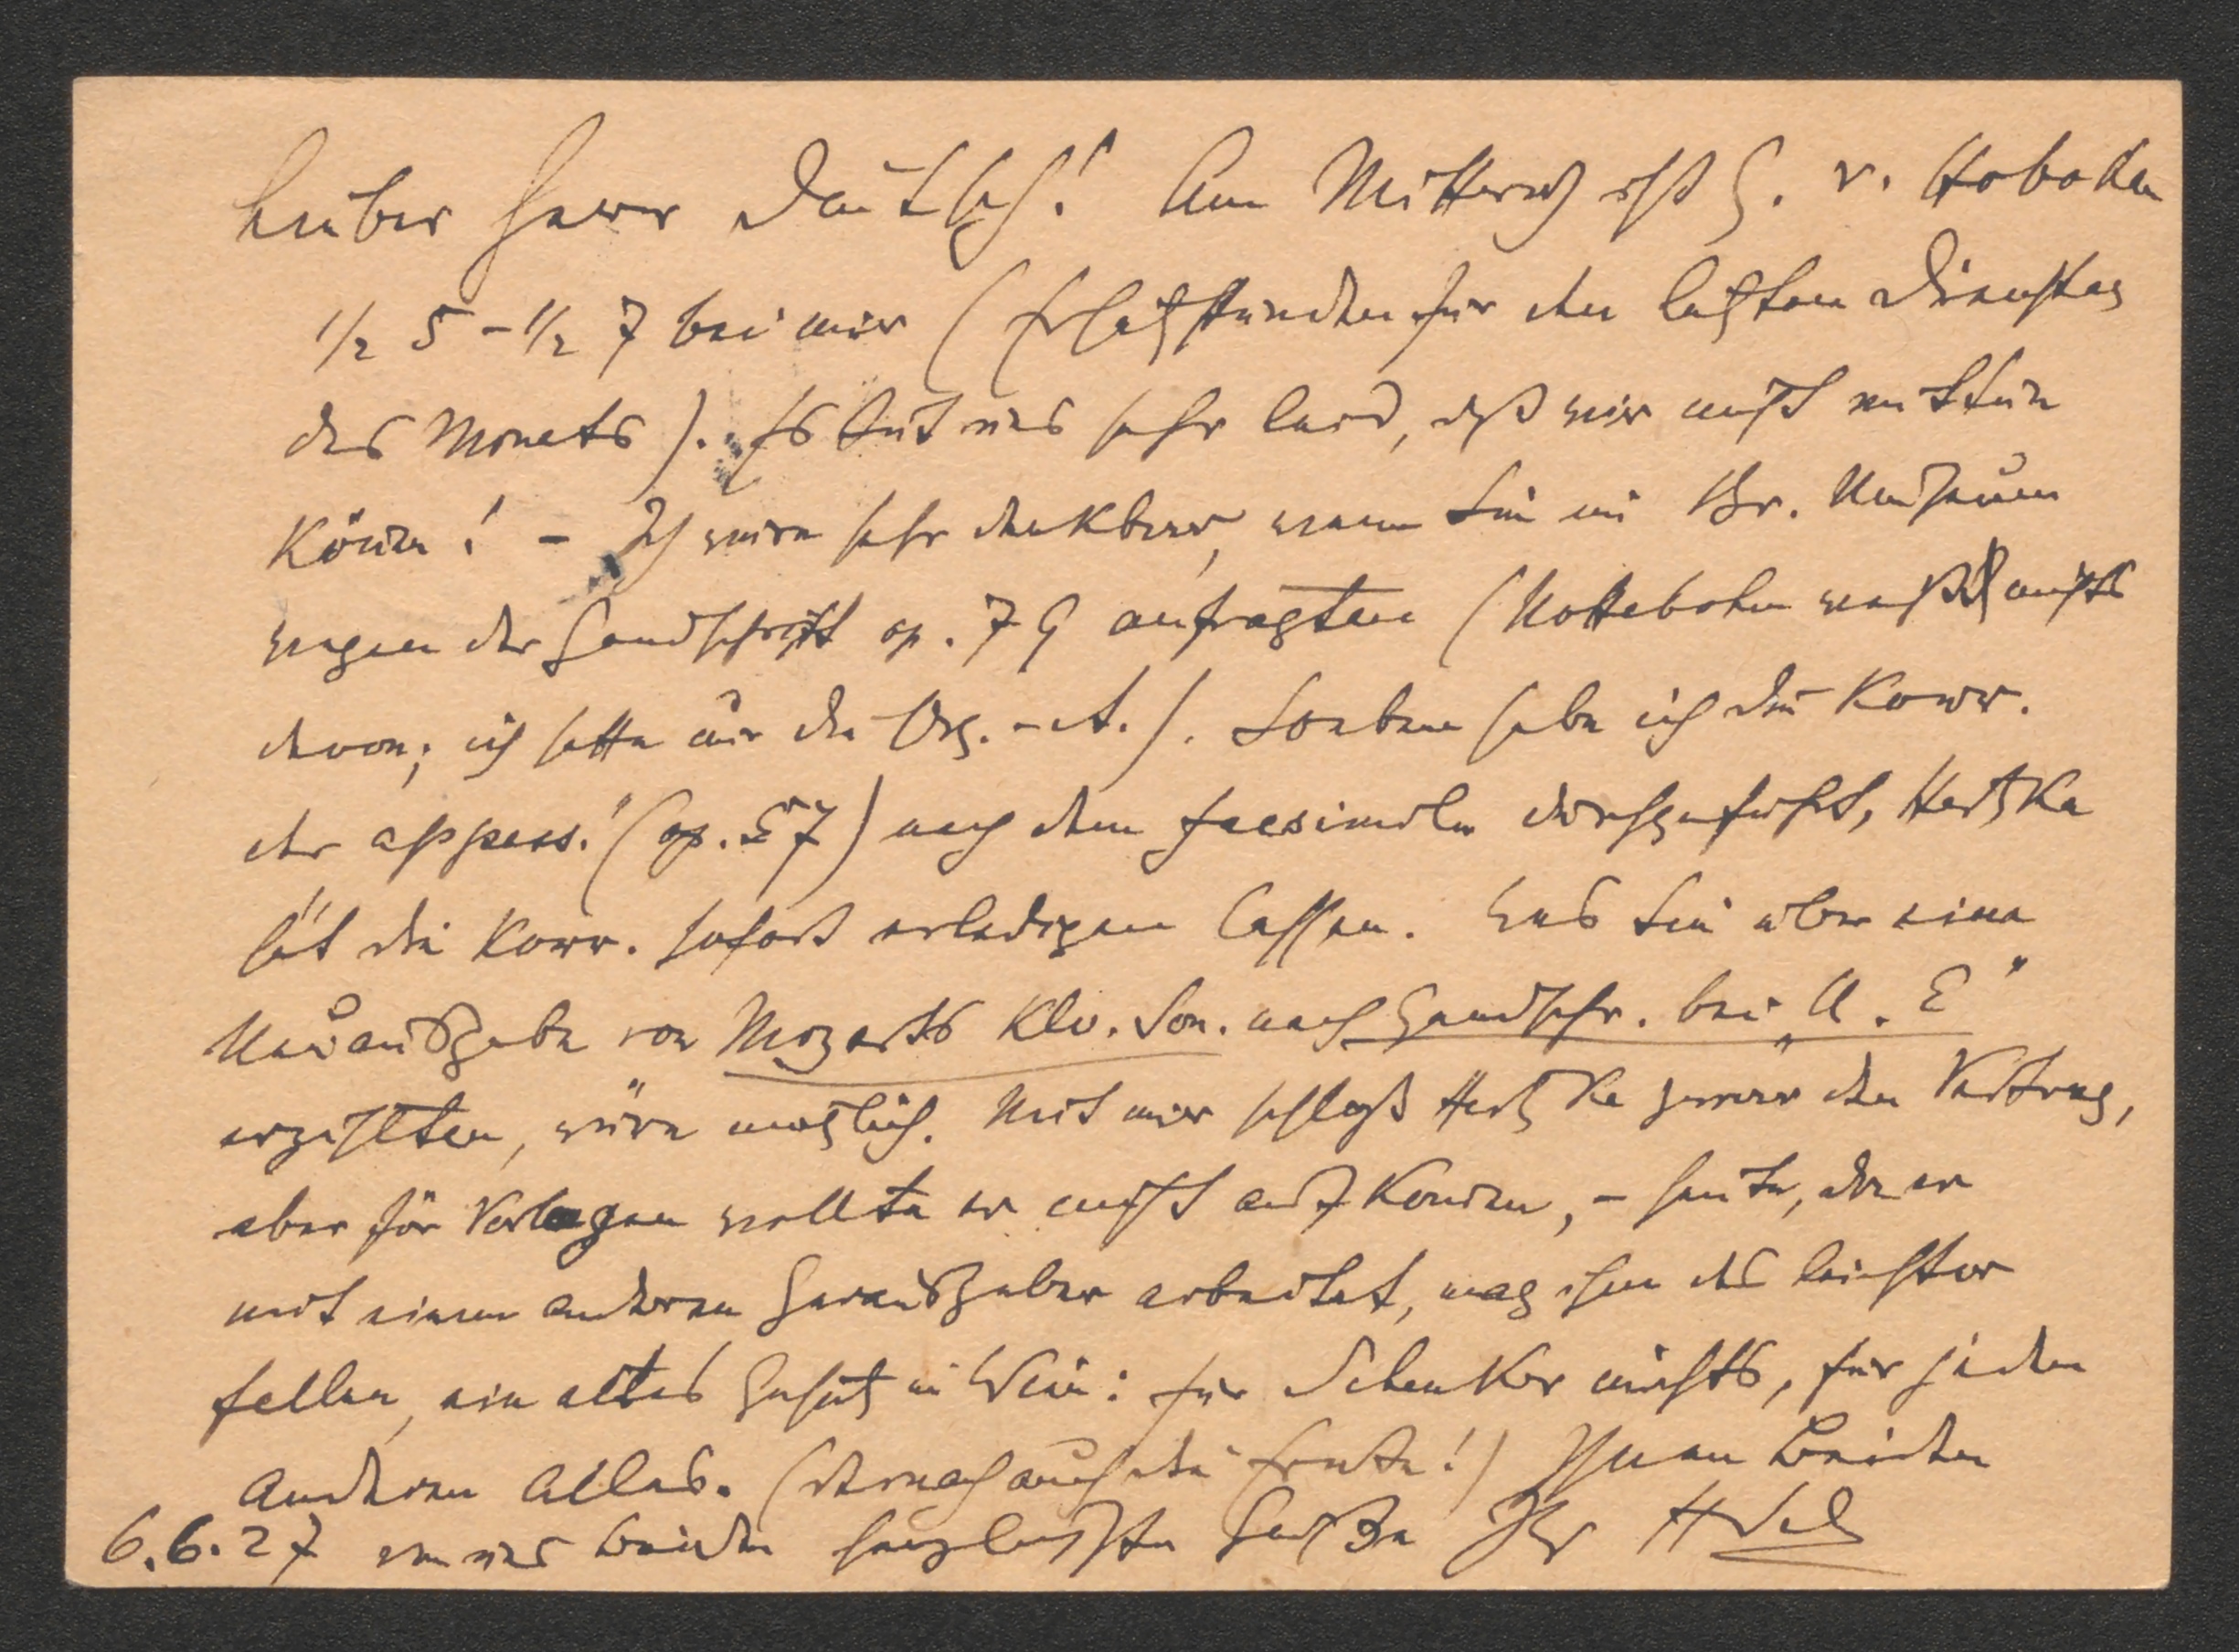 Lieber Herr Deutsch! Am Mittwoch ist H. v. Hoboken
½ 5 – ½ 7 bei mir (Ersatzstunden für den letzten Dienstag
des Monats). Es tut uns sehr leid, daß wir nicht mittun
können! – Ich wäre sehr dankbar, wenn Sie im Br. Museum
wegen der Handschrift op. 79 anfragten (Nottebohm weiß nichts
davon; ich hatte nur die Org.-A.). Soeben habe ich die Korr.
der „appass." (op. 57) nach dem Facsimile durchgeführt, Hertzka
läßt die Korr. sofort erledigen lassen. Was Sie über eine
Neuausgabe von Mozarts Klv. Son. nach Handschr. bei „U. E"
erzählten, wäre möglich. Mit mir schloß Hertzka zwar den Vertrag,
aber für Vorlagen wollte er nicht aufkommen, – heute, da er
mit einem anderen Herausgeber arbeitet, mag ihm das leichter
fallen, ein altes Gesetz in Wien: für Schenker nichts, für jeden
Anderen Alles. (Danach auch die Ernte!) Ihnen Beiden
6.6.27 von uns beiden herzlichste Grüße Ihr HSch